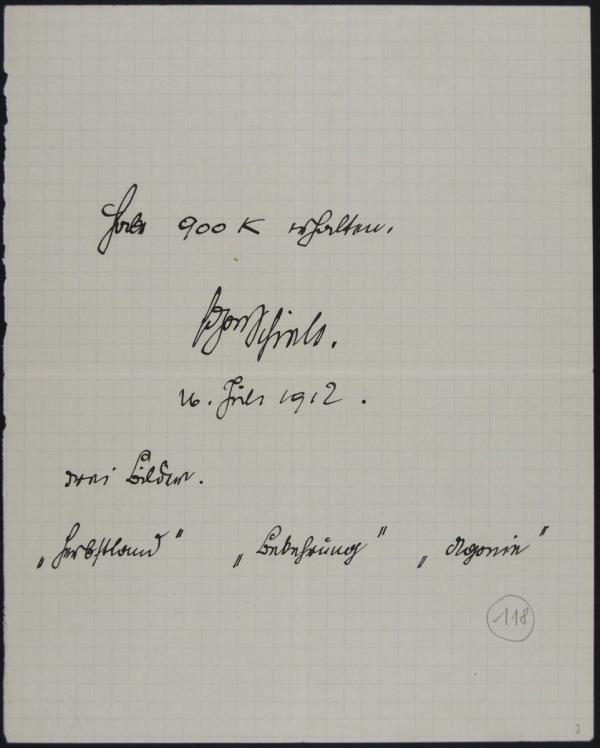 Habe 900 K erhalten.
Egon Schiele.
16. Juli 1912.
drei Bilder.
„Herbstland" „Bekehrung" „Agonie"
118